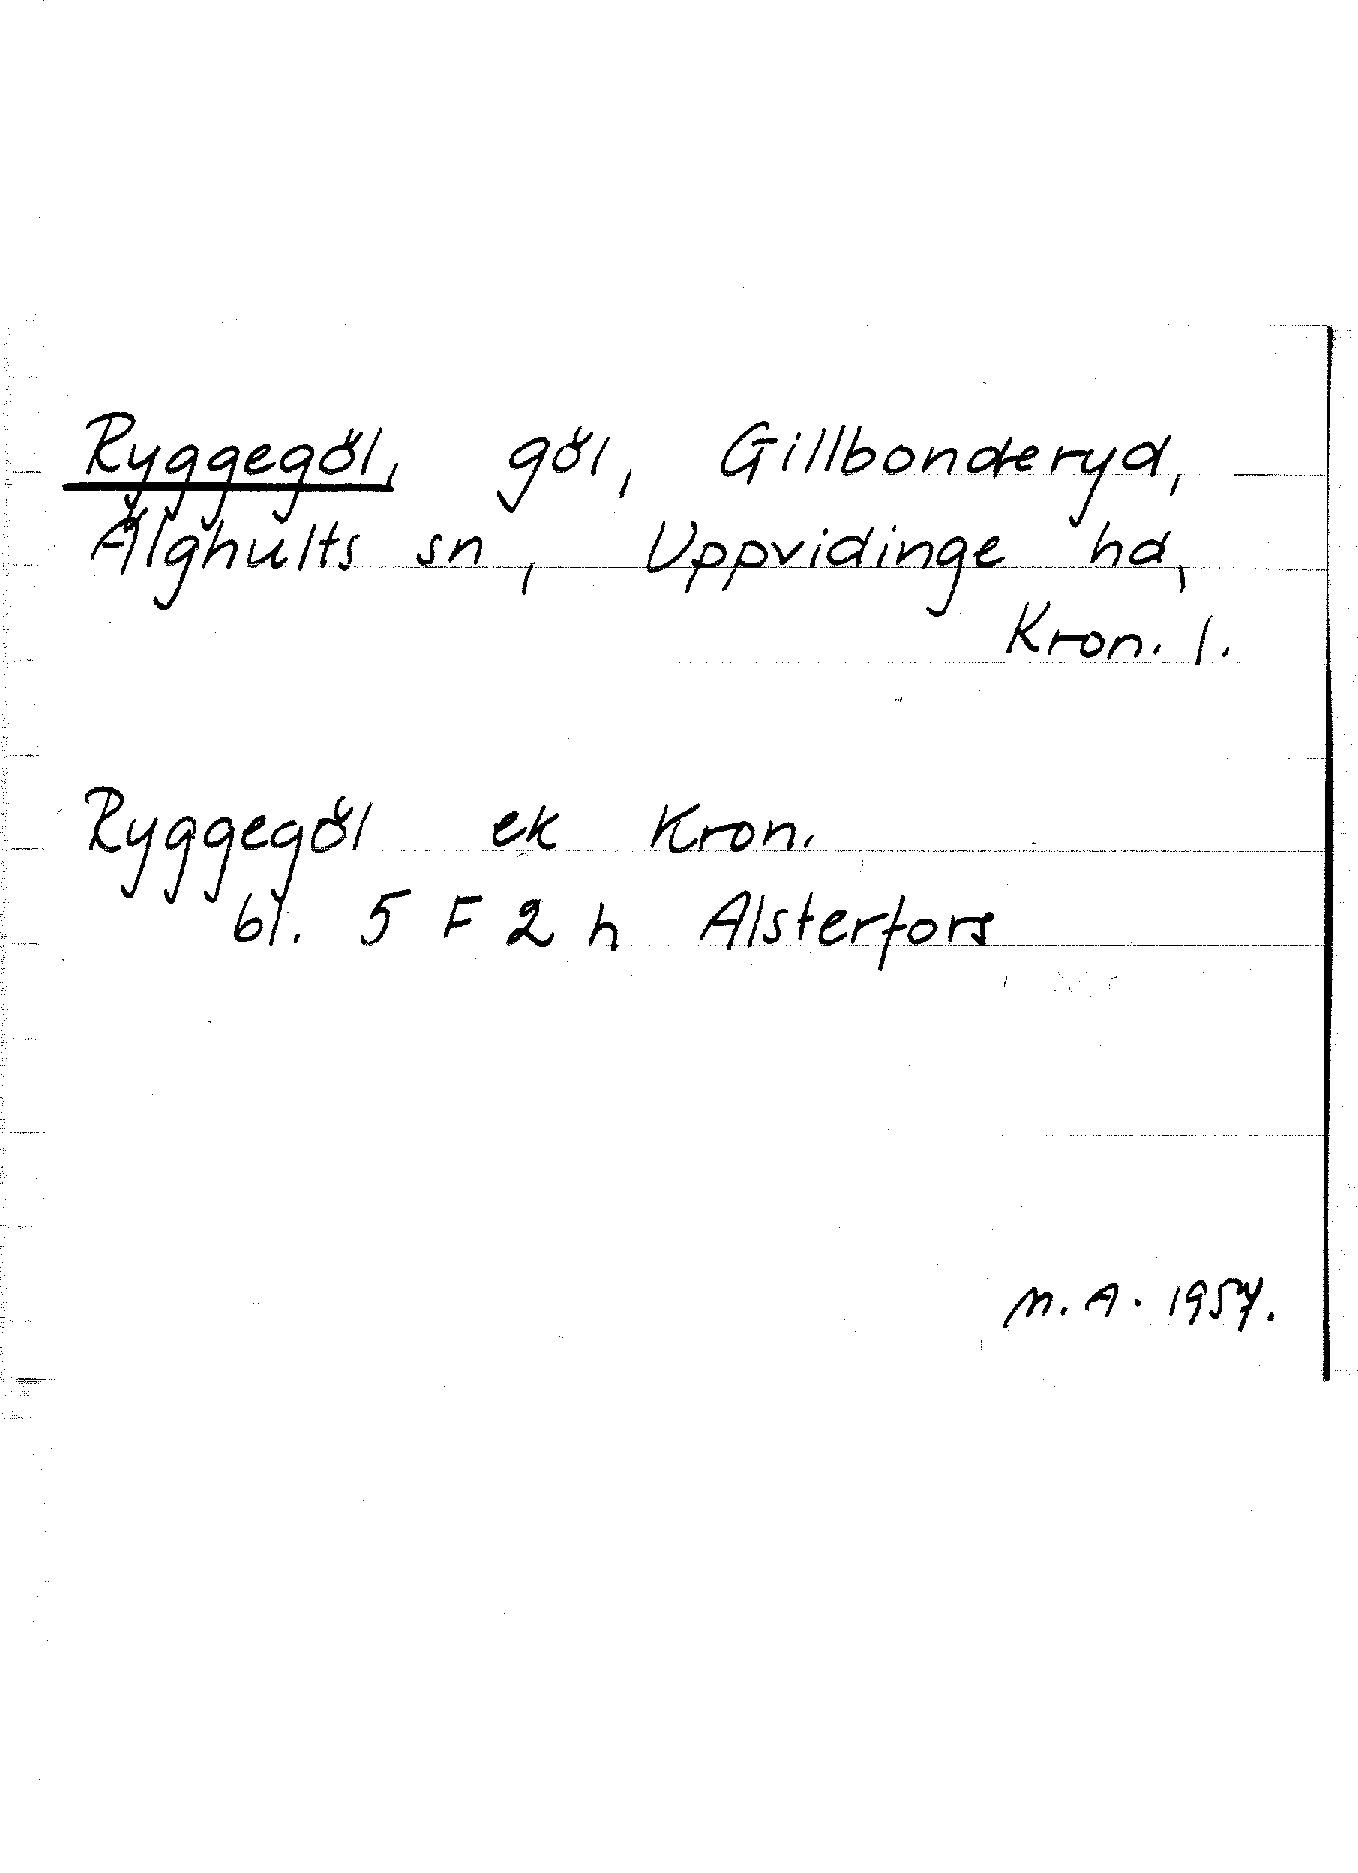 Ryggegöl, göl, Gillbonderyd,
Älghults sn, Uppvidinge hd,
Kron. l.
Ryggegöl ek Kron.
bl. 5 F 2 h Alsterfors
M. A. 1957.